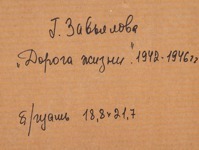 Г. Завьялова
"Дорога жизни". 1942-1946гг
б/гуашь 18,8х21,7